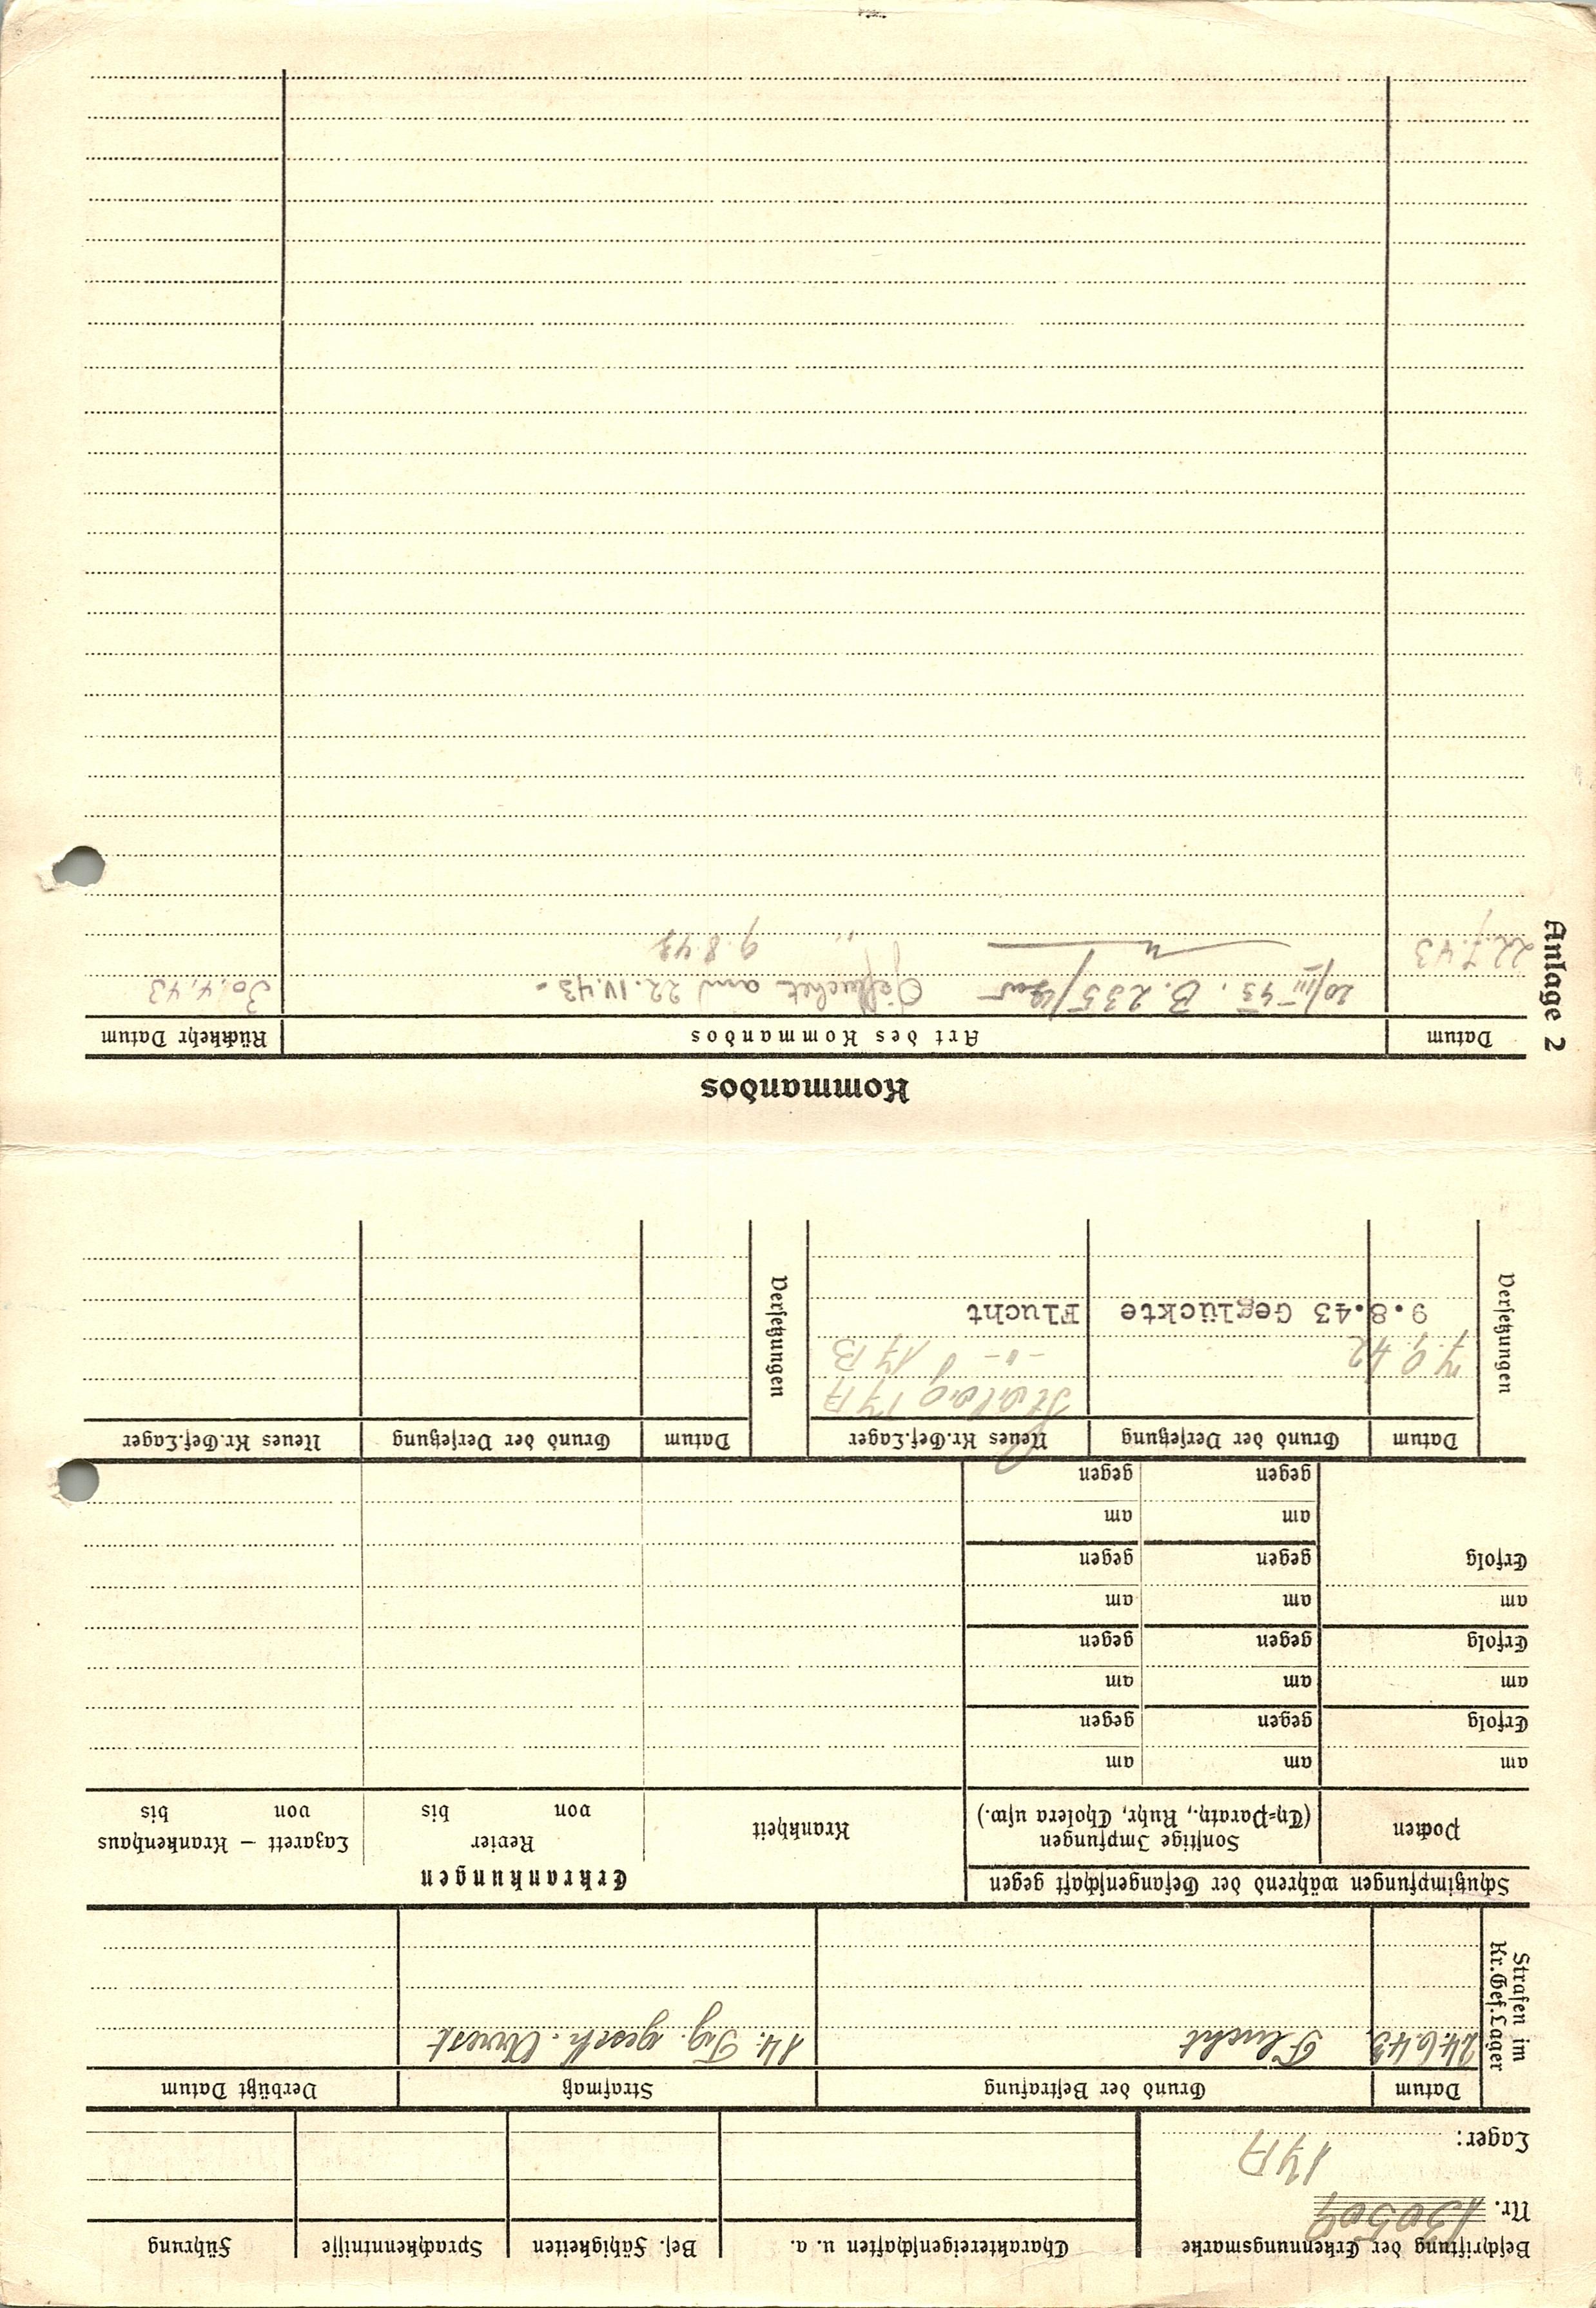 Beschriftung der Erkennungsmarke
Nr. 130509
Lager: 17A
Charaktereigenschaften u. a.
Bes. Fähigkeiten
Sprachkenntnisse
Führung
Strafen im
Kr.Gef.Lager
Datum
Grund der Bestrafung
Strafmaß
Verbüßt Datum
24.6.43
Flucht
14. Tg. gesch. Arrest
Schutzimpfungen während der Gefangenschaft gegen
Pocken
Sonstige Impfungen
(Ty=Paraty., Ruhr, Cholera usw.)
am
am
am
Erfolg
gegen
gegen
am
am
am
Erfolg
gegen
gegen
am
am
am
Erfolg
gegen
gegen
am
am
gegen
gegen
Erkrankungen
Krankheit
Revier
von bis
Lazarett – Krankenhaus
von bis
Versetzungen
Datum
Grund der Versetzung
Neues Kr.Gef.Lager
Stalag 17A
7.9.42
-"- 17B
9.8.43 Geglückte Flucht
Versetzungen
Datum
Grund der Versetzung
Neues Kr.Gef.Lager
Kommandos
Anlage 2
Datum
Art des Kommandos
Rückkehr Datum
20/III 43. B. 235/ Geflüchtet am 22.IV.43. 30.4.43
22.7.43 " " 9.8.43